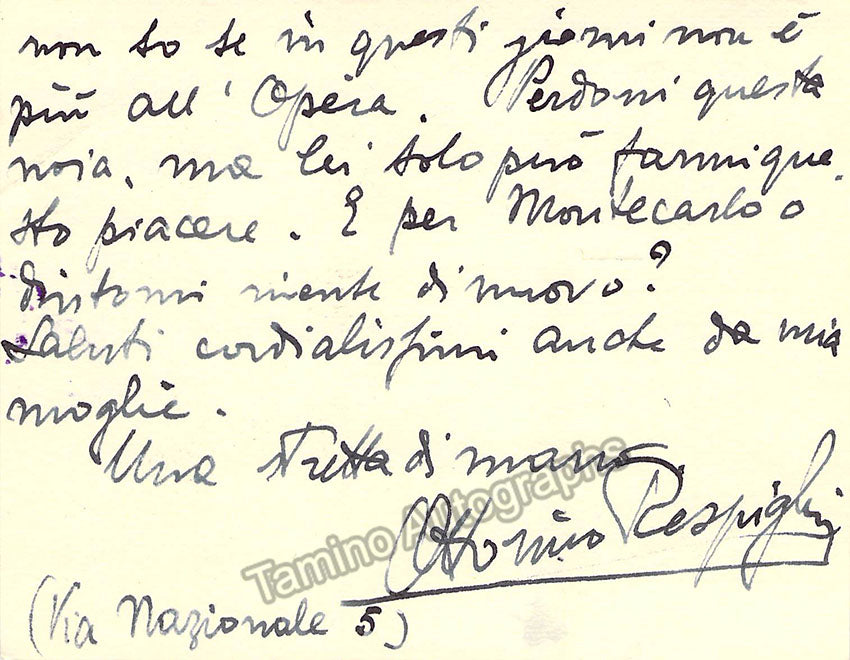 non so se in questi giorni non è
più all'Opéra. Perdoni questa
noia, ma lei solo può farmi que-
sto piacere. E per Montecarlo o
dintorni niente di nuovo?
Saluti cordialissimi anche da mia
moglie.
Una stretta di mano
Ottorino Respighi
(Via Nazionale 5)
Tamino Autographs